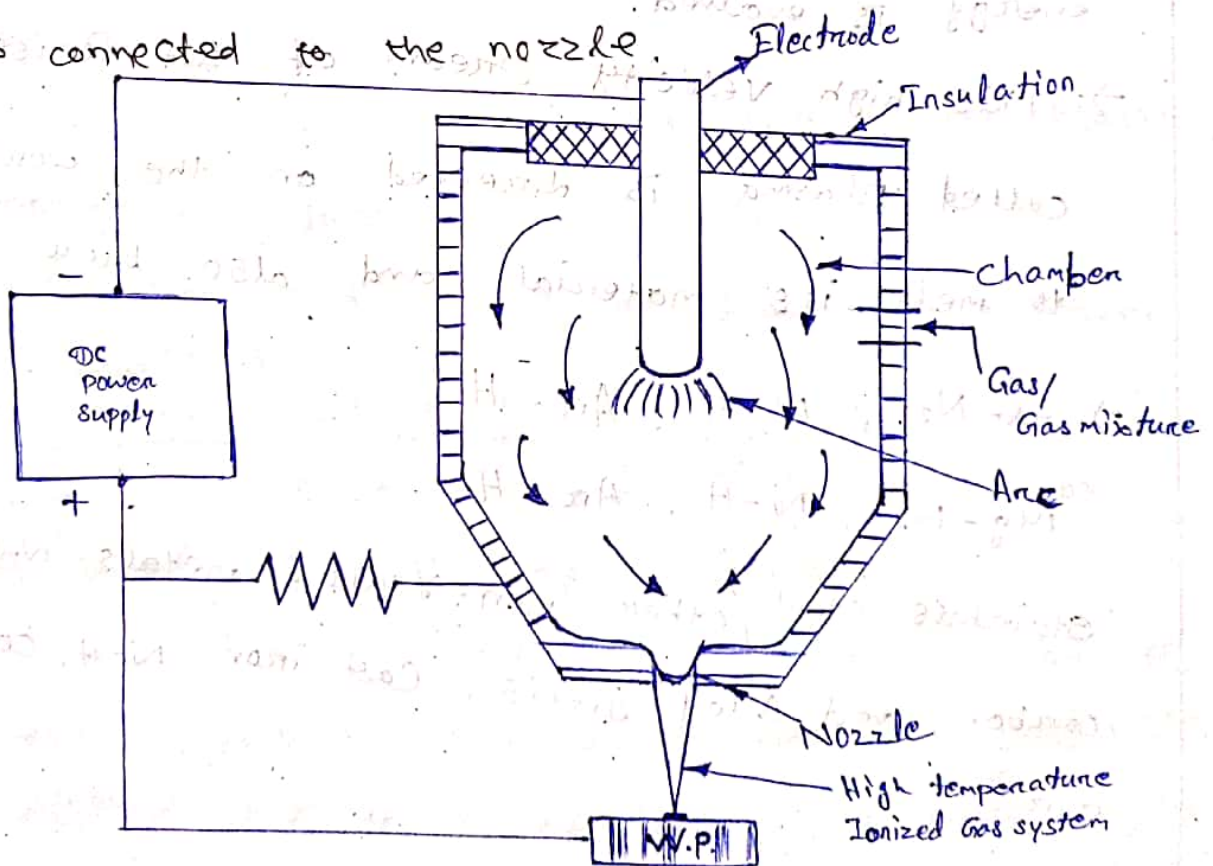 connected to the nozzle.
Electrode
Insulation
Chamber
Gas/
Gas mixture
Arc
-
DC
power
supply
+
Nozzle
High temperature
Ionized Gas system
W.P.